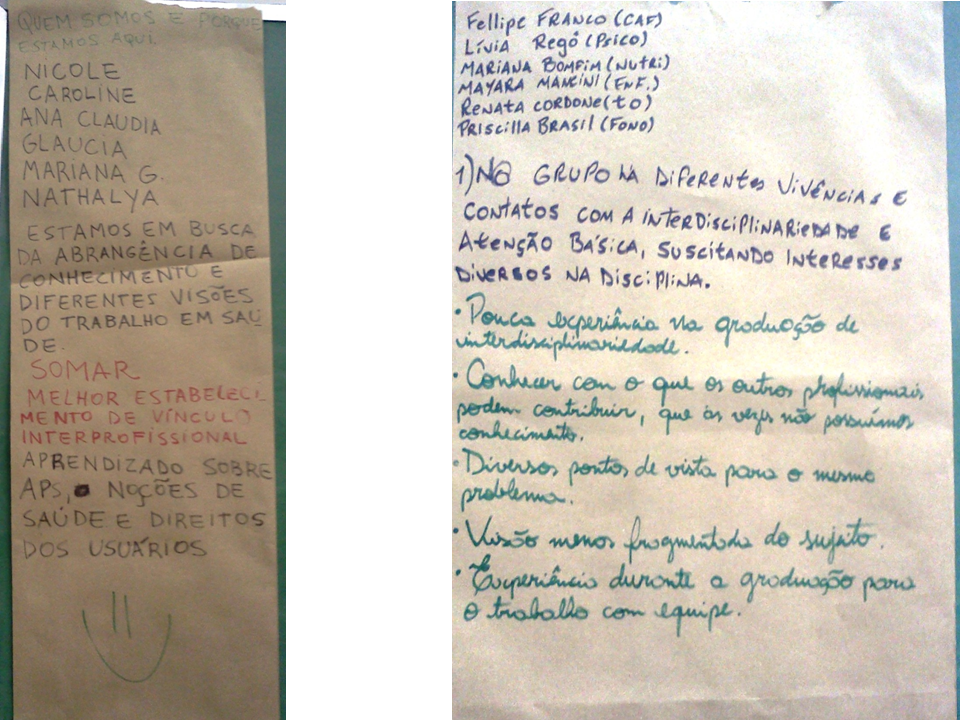 QUEM SOMOS E PORQUE
ESTAMOS AQUI.
NICOLE
CAROLINE
ANA CLAUDIA
GLAUCIA
MARIANA G.
NATHALYA
ESTAMOS EM BUSCA
DA ABRANGÊNCIA DE
CONHECIMENTO E
DIFERENTES VISÕES
DO TRABALHO EM SAÚ
DE.
SOMAR
MELHOR ESTABELECI-
MENTO DE VÍNCULO
INTERPROFISSIONAL
APRENDIZADO SOBRE
APS, NOÇÕES DE
SAÚDE E DIREITOS
DOS USUÁRIOS
Fellipe FRANCO (CAF)
Lívia Regô (Psico)
MARIANA BOMFIM (Nutri)
MAYARA MANCINI (ENF.)
Renata CORDONE (to)
PRISCILLA BRASIL (FONO)
1) NO GRUPO HÁ DIFERENTES VIVÊNCIAS E
CONTATOS COM A INTERDISCIPLINARIEDADE E
ATENÇÃO BÁSICA, SUSCITANDO INTERESSES
DIVERSOS NA DISCIPLINA.
• Pouca experiência na graduação de
interdisciplinariedade.
• Conhecer com o que os outros profissionais
podem contribuir, que às vezes não possuímos
conhecimento.
• Diversos pontos de vista para o mesmo
problema.
• Visão menos fragmentada do sujeito.
• Experiência durante a graduação para
o trabalho com equipe.